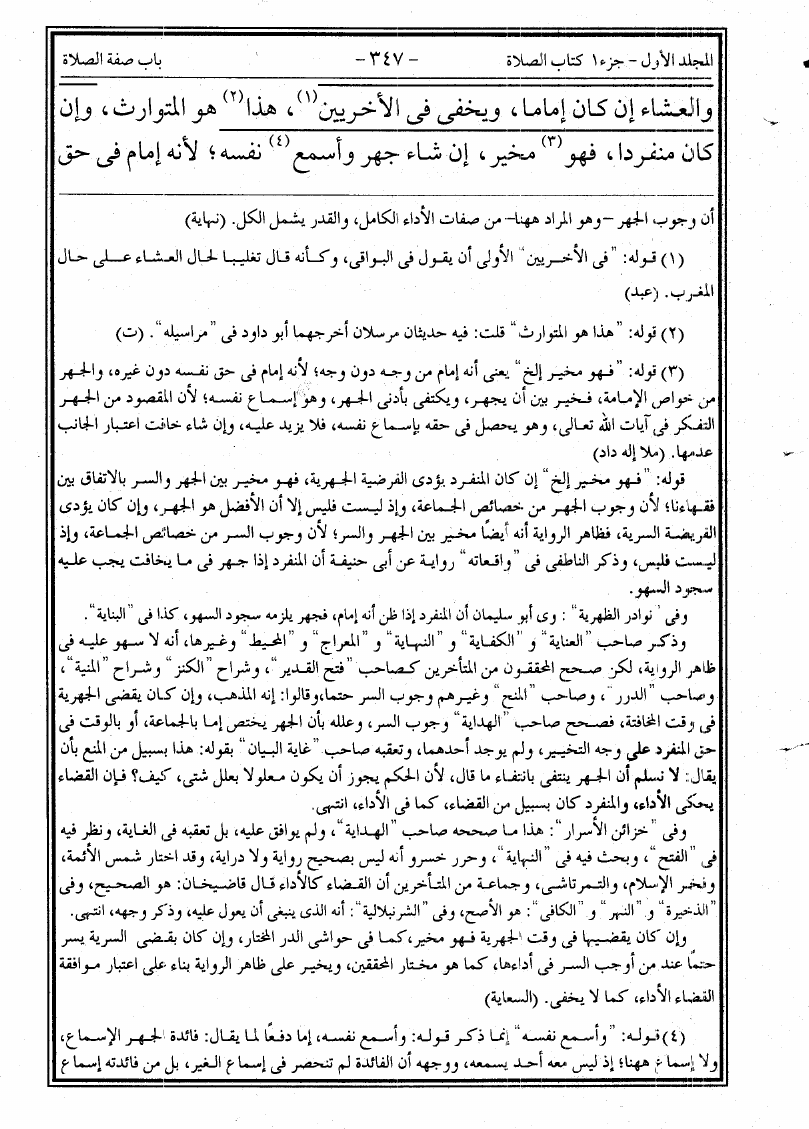 المجلد الأول – جزء١ كتاب الصلاة – ٣٤٧ – باب صفة الصلاة
والعشاء إن كان إماما، ويخفى فى الأخريين(١)، هذا(٢) هو المتوارث، وإن
كان منفردا، فهو(٣) مخير، إن شاء جهر وأسمع(٤) نفسه؛ لأنه إمام فى حق
أن وجوب الجهر –وهو المراد ههنا– من صفات الأداء الكامل، والقدر يشمل الكل. (نهاية)
(١) قوله: "فى الأخريين" الأولى أن يقول فى البواقى، وكأنه قال تغليبا لحال العشاء على حال
المغرب. (عبد)
(٢) قوله: "هذا هو المتوارث" قلت: فيه حديثان مرسلان أخرجهما أبو داود فى "مراسيله". (ت)
(٣) قوله: "فهو مخير إلخ" يعنى أنه إمام من وجه دون وجه؛ لأنه إمام فى حق نفسه دون غيره، والجهر
من خواص الإمامة، فخير بين أن يجهر، ويكتفى بأدنى الجهر، وهو إسماع نفسه؛ لأن المقصود من الجهر
التفكر فى آيات الله تعالى، وهو يحصل فى حقه بإسماع نفسه، فلا يزيد عليه، وإن شاء خافت اعتبار الجانب
عدمها. (ملا إله داد)
قوله: "فهو مخير إلخ" إن كان المنفرد يؤدى الفرضية الجهرية، فهو مخير بين الجهر والسر بالاتفاق بين
فقهاءنا؛ لأن وجوب الجهر من خصائص الجماعة، وإذ ليست فليس إلا أن الأفضل هو الجهر، وإن كان يؤدى
الفريضة السرية، فظاهر الرواية أنه أيضًا مخير بين الجهر والسر؛ لأن وجوب السر من خصائص الجماعة، وإذ
ليست فليس، وذكر الناطفى فى "واقعاته" رواية عن أبى حنيفة أن المنفرد إذا جهر فى ما يخافت يجب عليه
سجود السهو.
وفى "نوادر الظهرية": وى أبو سليمان أن المنفرد إذا ظن أنه إمام، فجهر يلزمه سجود السهو، كذا فى "البناية".
وذكر صاحب "العناية" و "الكفاية" و "النهاية" و "المعراج" و "المحيط" وغيرها، أنه لا سهو عليه فى
ظاهر الرواية، لكن صحح المحققون من المتأخرين كصاحب "فتح القدير"، وشراح "الكنز" وشراح "المنية"،
وصاحب "الدرر"، وصاحب "المنح" وغيرهم وجوب السر حتما، وقالوا: إنه المذهب، وإن كان يقضى الجهرية
فى وقت المخافتة، فصحح صاحب "الهداية" وجوب السر، وعلله بأن الجهر يختص إما بالجماعة، أو بالوقت فى
حق المنفرد على وجه التخيير، ولم يوجد أحدهما، وتعقبه صاحب "غاية البيان" بقوله: هذا بسبيل من المنع بأن
يقال: لا نسلم أن الجهر ينتفى بانتفاء ما قال، لأن الحكم يجوز أن يكون معلولا بعلل شتى، كيف؟ فإن القضاء
يحكى الأداء، والمنفرد كان بسبيل من القضاء، كما فى الأداء، انتهى.
وفى "خزائن الأسرار": هذا ما صححه صاحب "الهداية"، ولم يوافق عليه، بل تعقبه فى الغاية، ونظر فيه
فى "الفتح"، وبحث فيه فى "النهاية"، وحرر خسرو أنه ليس بصحيح رواية ولا دراية، وقد اختار شمس الأئمة،
وفخر الإسلام، والتمرتاشى، وجماعة من المتأخرين أن القضاء كالأداء قال قاضيخان: هو الصحيح، وفى
"الذخيرة" و "النهر" و "الكافى": هو الأصح، وفى "الشرنبلالية": أنه الذى ينبغى أن يعول عليه، وذكر وجهه، انتهى.
وإن كان يقضيها فى وقت الجهرية فهو مخير، كما فى حواشى الدر المختار، وإن كان يقضى السرية يسر
حتمًا عند من أوجب السر فى أداءها، كما هو مختار المحققين، ويخير على ظاهر الرواية بناء على اعتبار موافقة
القضاء الأداء، كما لا يخفى. (السعاية)
(٤) قوله: "وأسمع نفسه" إنما ذكر قوله: وأسمع نفسه، إما دفعًا لما يقال: فائدة الجهر الإسماع،
ولا إسماع ههنا؛ إذ ليس معه أحد يسمعه، ووجهه أن الفائدة لم تنحصر فى إسماع الغير، بل من فائدته إسماع